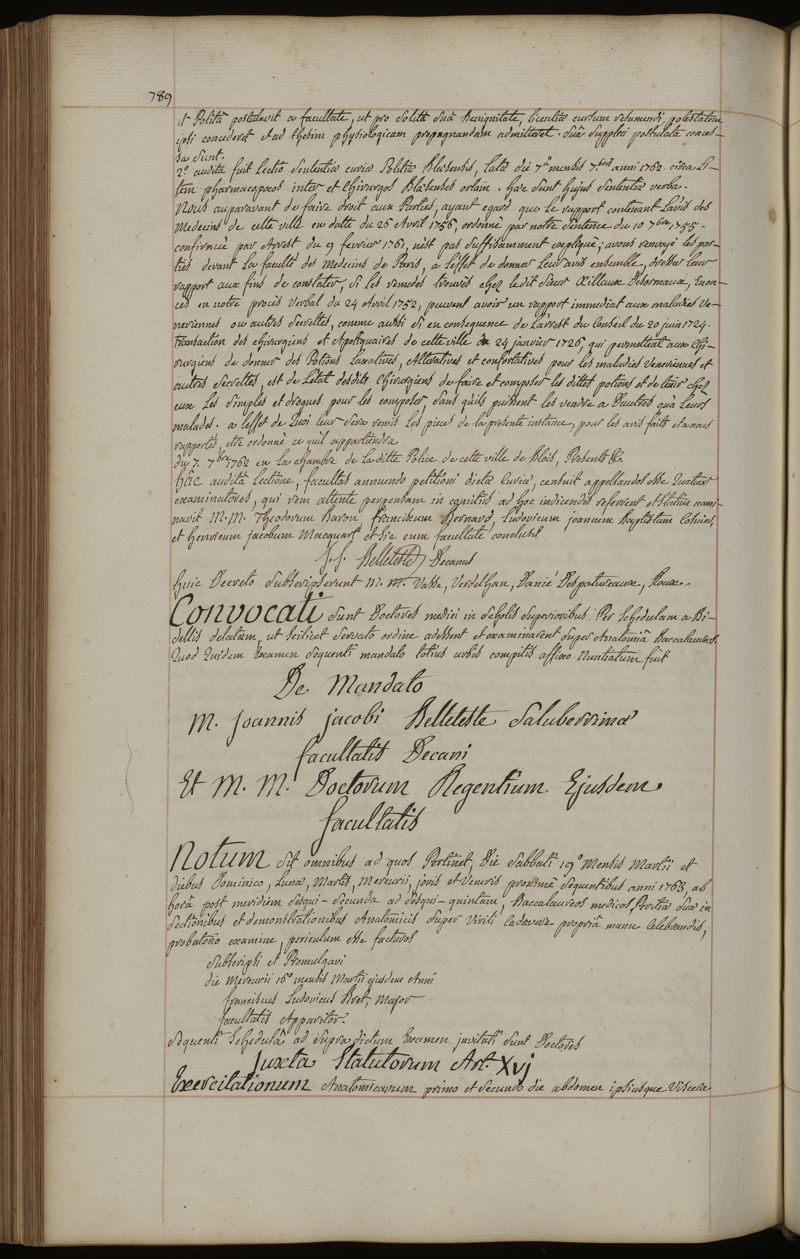 789
et Politiâ postulavit a facultate, ut pro solitâ suâ Benignitate, licentiæ cursum resumendi potestatem
ipsi concederet et ad thesim physiologicam propugnandam admitteret. Suâ supplici postulata conces-
sa sunt.
2º audita fuit lectio sententiæ curiæ Politiæ Blæsensis, lata die 7ª mensis 7.bris anni 1762. circa Li-
tem pharmacopæos inter et Chirurgos Blæsenses ortam. hæc sunt hujus sententiæ verba.
Nous auparavant de faire droit aux Parties, ayant egard que le rapport contenant L'avis des
Medecins de cette ville en datte du 26 Avril 1756, ordonné par notre sentence du 10 7bre 1755.
confirmée par Arrest du 9 fevrier 1761, n'est pas suffisamment expliqué; avons renvoyé les par-
ties devant La faculté des Medecins de Paris, a L'effet de donner Leur avis ensemble, dresser leur
rapport aux fins de constater, si les remedes trouvés chez ledit Sieur Desormeaux, Enon-
cés en notre procès Verbal du 24 Avril 1752, peuvent avoir un rapport immediat aux maladies Ve-
neriennes ou autres secrettes, comme aussi si en consequence de L'arrest du Conseil du 20 juin 1724.
transaction des chirurgiens et Apotiquaires de cette ville du 24 janvier 1726, qui permettent aux Chi-
rurgiens de donner des Potions Laxatives, Alteratives et confortatives pour les maladies Veneriennes et
autres secrettes, est de L'etat desdits Chirurgiens de faire et composer les dittes potions et de tenir chez
eux Les simples et drogues pour les composer, sans qu'ils puissent les vendre a D'autres qu'à Leurs
malades. a L'effet de Quoi leur sera remis Les pieces de la presente instance, pour les avis faits et a nous
rapportés, être ordonné ce qu'il appartiendra
du 7. 7bre 1762 en La chambre de La ditte Police de cette ville de Blois, Presents &c
Hâc auditâ Lectione, facultas annuendo petitioni dictæ Curiæ, censuit appellandos esse Quatuor
examinatores, qui rem attente perpensam in comitiis ad hoc indicendis referrent et statim nomi-
navit M.M. Theodorum Baron, franciscum Bernard, Ludovicum joannem Baptistam Cosnier,
et Henricum jacobum Macquart et sic cum facultate conclusit
J. J. Belleteste Decanus
huic Decreto subscripserunt M. Mri Vasse, Verdelhan, Danié Despatureaux, Roux.
Convocati sunt Doctores medici in scholis superioribus Per schedulam a Bi-
dellis delatam, ut scilicet servato ordine adessent et examinarent super Anatomiâ Baccalaureos.
Quod Quidem Examen sequenti mandato totius urbis compitis affixo Nuntiatum fuit
De Mandato
M. Joannis jacobi Belleteste Saluberrimæ
facultatis Decani
Et M. M. Doctorum Regentium Ejusdem
facultatis
Notum sit omnibus ad quos Pertinet, Die Sabbati 19º Mensis Martii et
diebus Dominico, Lunæ, Martis, Mercurii, jovis et Veneris proximè sequentibus anni 1763, ab
horâ post meridiem sesqui-secunda ad sesqui-quintam, Baccalaureos medicos Peritiæ suæ in
sectionibus et demonstrationibus Anatomicis super Virili Cadavere propriâ manu Celebrandis,
probatorio examine, periculum esse facturos
Subscripsi et Promulgavi
die Mercurii 16º mensis Martii ejusdem Anni
franciscus Ludovicus Bret, Major
facultatis Apparitor.
Sequenti Schedulâ ad supra dictum Examen invitati sunt Doctores
Juxta Statutorum Art. XVj
Exercitationum Anatomicarum primo et secundo die abdomen ipsiusque Viscera